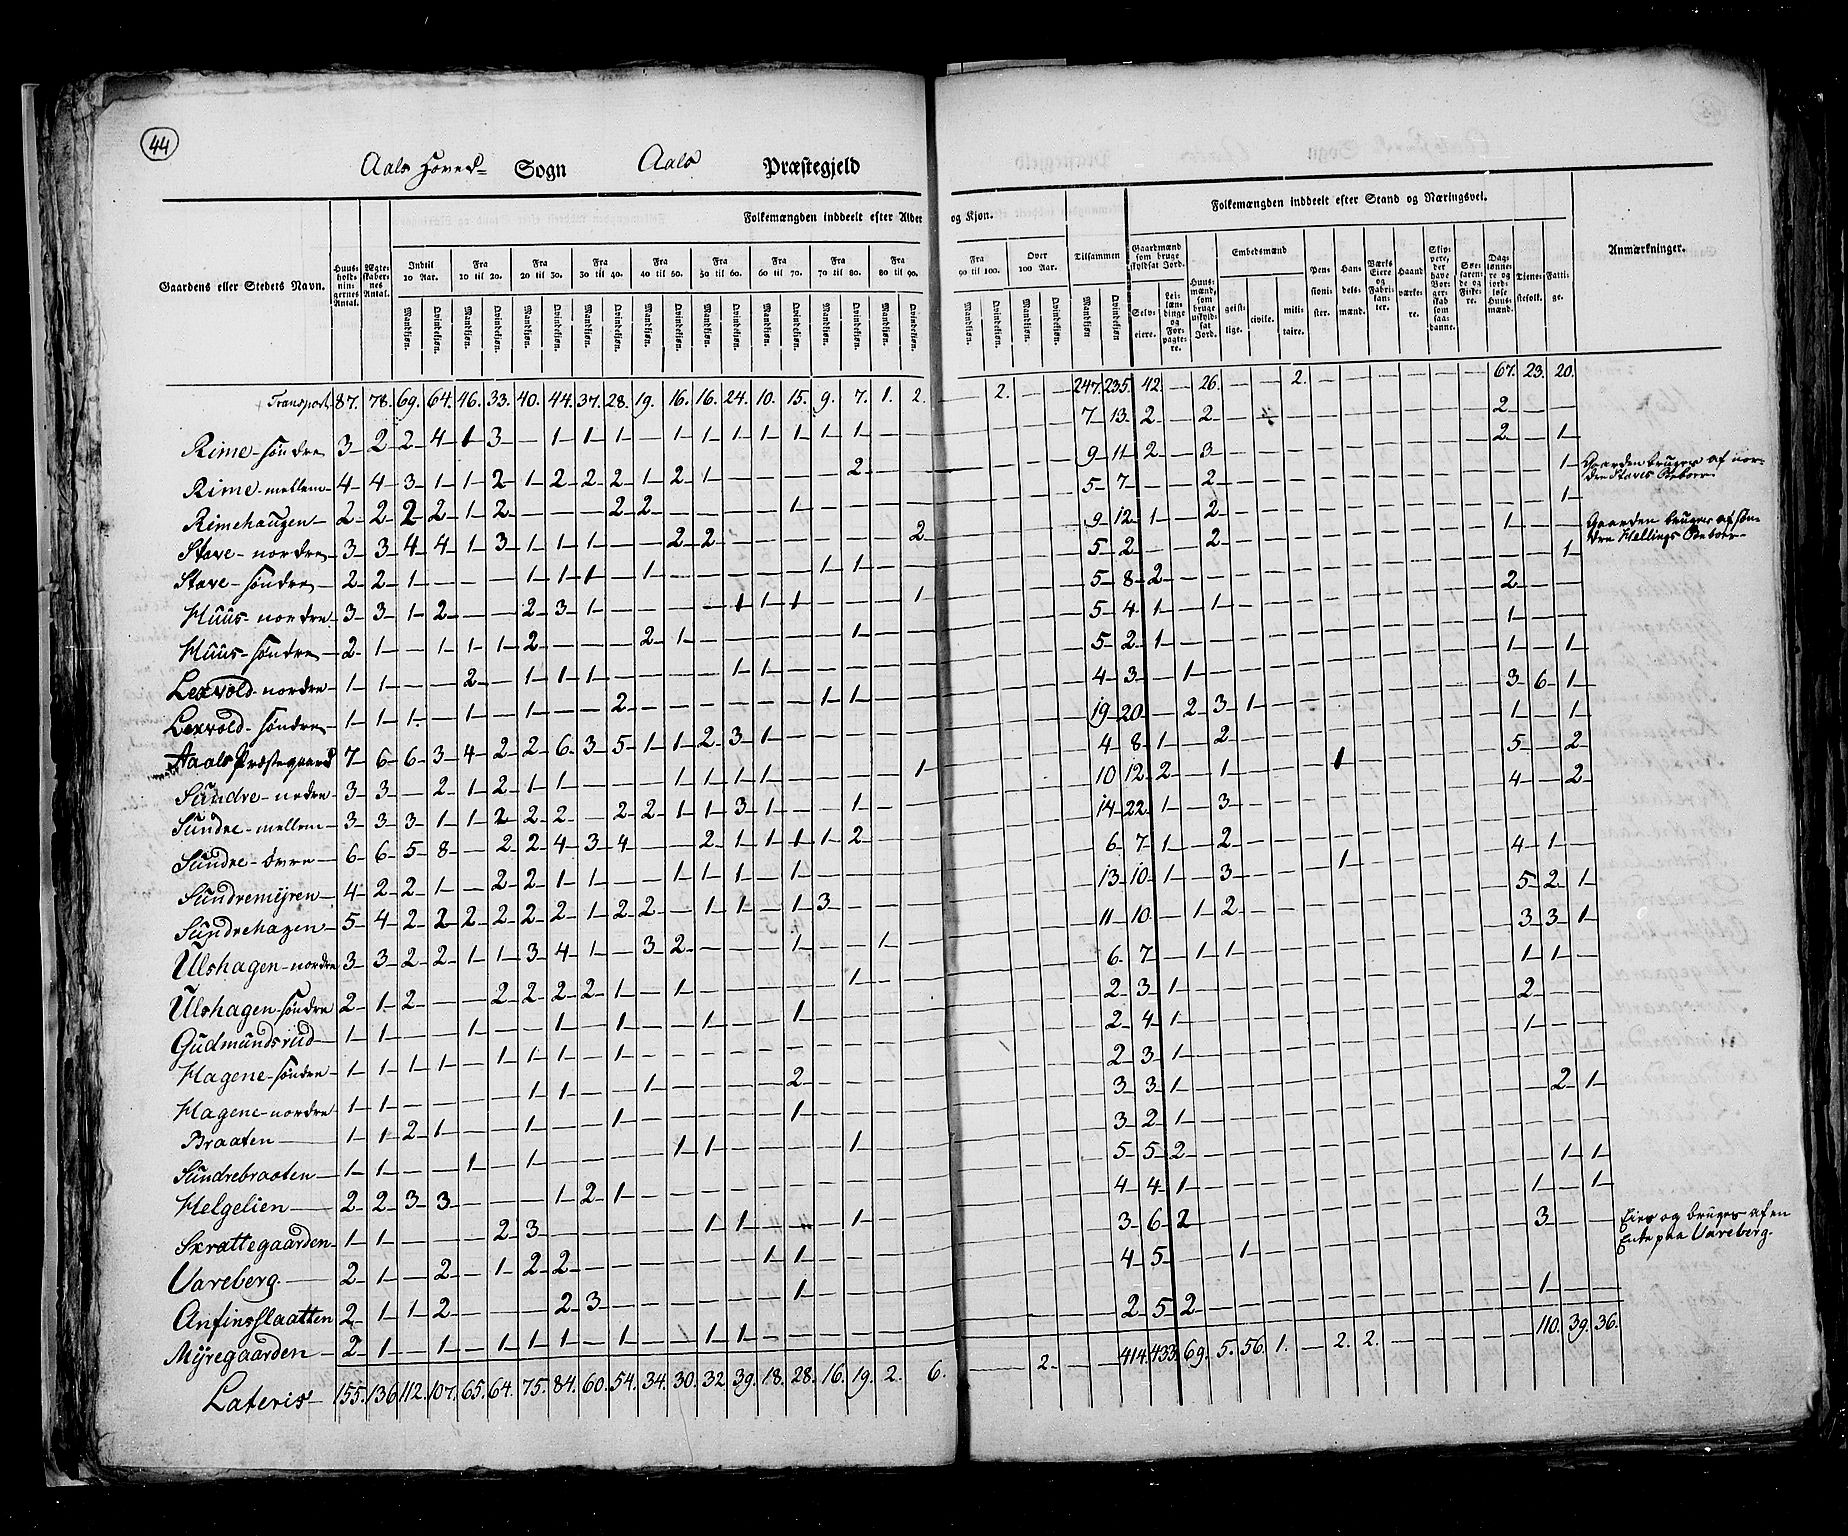 44
Aals Hoved- Sogn Aals Præstegjeld
Gaardens eller Stedets Navn.
Huus-holdningernes Antal.
Ægteskabernes Antal.
Folkemængden inddeelt efter Alder og Kjøn.
Indtil 10 Aar. Fra 10 til 20. Fra 20 til 30. Fra 30 til 40. Fra 40 til 50. Fra 50 til 60. Fra 60 til 70. Fra 70 til 80. Fra 80 til 90. Fra 90 til 100. Over 100 Aar. Tilsammen
Mandkjøn. Qvindekjøn.
Folkemængden inddeelt efter Stand og Næringsvei.
Gaardmænd som bruge skyldsat Jord.
Selveiere. Leilændinge og Forpagtere.
Huusmænd, som bruge uskyldsat Jord.
Embedsmænd
geistlige. civile. militaire.
Pensionister. Handelsmænd. Værks Eiere og Fabrikanter. Haandværkere.
Søefarende og Fiskere.
Daglønnere og jordløse Huusmænd.
Tienestefolk. Fattige.
Anmærkninger.
Transport 87. 78. 69. 64. 46. 33. 40. 44. 37. 28. 19. 16. 16. 24. 10. 15. 9. 7. 1. 2. — 2. — — 247. 235. 42. — 26. — — 2. — — — — — — 67. 23. 20.
Rime-søndre 3 2 2 4 1 3 — 1 1 1 — 1 1 1 1 1 1 1 — — 7 13 2 — 2 2
Rime-mellem 4 4 3 1 1 2 1 2 2 2 1 2 1 — — — — 2 — — 9 11 2 — 3 2 — 1
Rimehaugen 2 2 2 2 1 2 — — — 2 2 — — — — 1 — — — — 5 7 — — 2 1 Gaarden bruges af nordre Staves Beboer
Stave-nordre 3 3 4 4 1 3 1 1 1 — — 2 2 — — — — — — 2 9 12 1 — 2 1
Stave-søndre 2 2 1 — — — 1 1 1 — 1 — — — — — 1 1 — — 5 2 — — 2 1 — Gaarden bruges af søndre Hellings Beboer
Huus-nordre 3 3 1 2 — — 2 3 1 — — — — 1 1 1 — — — 1 5 8 2
Huus-søndre 2 1 — 1 1 1 2 — — — 2 1 — — — — — 1 — — 5 4 1 — 1 2
Lexvold-nordre 1 1 — — 2 — 1 1 1 — — — — 1 1 — — — — — 5 2 1 1
Lexvold-søndre 1 1 1 — 1 — 1 — — 2 — — — — — — 1 1 — — 4 3 — 1 1 — 1
Aals Præstegaard 7 6 6 3 4 2 2 6 3 5 1 1 2 3 1 — — — — — 19 20 — 2 3 1 3 6 1
Sundre-nedre 3 3 — 2 1 2 1 1 — — — 1 1 1 1 — — — — 1 4 8 1 — 2 1 — 1
Sundre-mellem 3 3 3 1 1 2 2 2 — 2 2 1 1 3 1 — — 1 — — 10 12 2 — 1 1 5 — 2
Sundre-øvre 6 6 5 8 — 2 2 4 3 4 — — 2 1 1 1 1 2 — — 14 22 1 — 3 4 — 2
Sundremÿren 4 2 2 1 — 2 2 1 1 — — 1 1 1 — 1 — — — — 6 7 1 — 2 4 1 —
Sundrehagen 5 4 2 2 2 2 2 2 1 2 2 — 1 1 — 1 3 — — — 13 10 1 — 3 1 5 2 1
Ulshagen-nordre 3 3 2 2 1 1 3 4 1 — 3 2 — — — 1 — — 1 — 11 10 — 1 2 3 3 1
Ulshagen-søndre 2 1 2 — — 2 2 2 2 1 — 1 — — — — — 1 — — 6 7 — 1 1 1 1 —
Gudmundsrud 1 1 — — 1 — — 1 — 1 — — 1 — — 1 — — — — 2 3 1 2
Hagene-søndre 1 1 1 1 — 1 1 1 — 1 — — — — — — — — — — 2 4 1 1
Hagene-nordre 1 1 — — — — 1 1 — — 1 — — — — 2 — — — — 2 3 1
Braaten 1 1 2 1 — — 1 — — 1 — — — — — 1 — — — — 3 3 1 2 1
Sundrebraaten 1 1 — — 1 — 1 — — — — 1 1 — — — — 1 — — 3 2 1
Helgelien 2 2 3 3 — — — 1 2 1 — — — — — — — — — — 5 5 2 1 1
Skrattegaarden 1 1 — — — 2 3 — — — — — 1 1 — — — 1 — — 4 4 1 1 — 1
Vareberg 2 1 — 2 — 1 2 2 — — — — — — 1 1 — — — — 3 6 2 3
Anfinsslaatten 2 1 1 2 — — — 2 3 — — — — — — 1 — — — — 4 5 — — 1 Eies og bruges af en Enke paa Vareberg.
Mÿregaarden 2 1 — 1 — 1 1 1 — 1 — — 1 1 — — — — — — 2 5 2 1
Lateris 155. 136 112. 107. 65. 64. 75. 84. 60. 54. 34. 30. 32 39. 18. 28. 16. 19. 2. 6. — 2. — — 414. 433. 69. 5. 56. 1. — 2. 2. — — — — — 110. 39. 36.